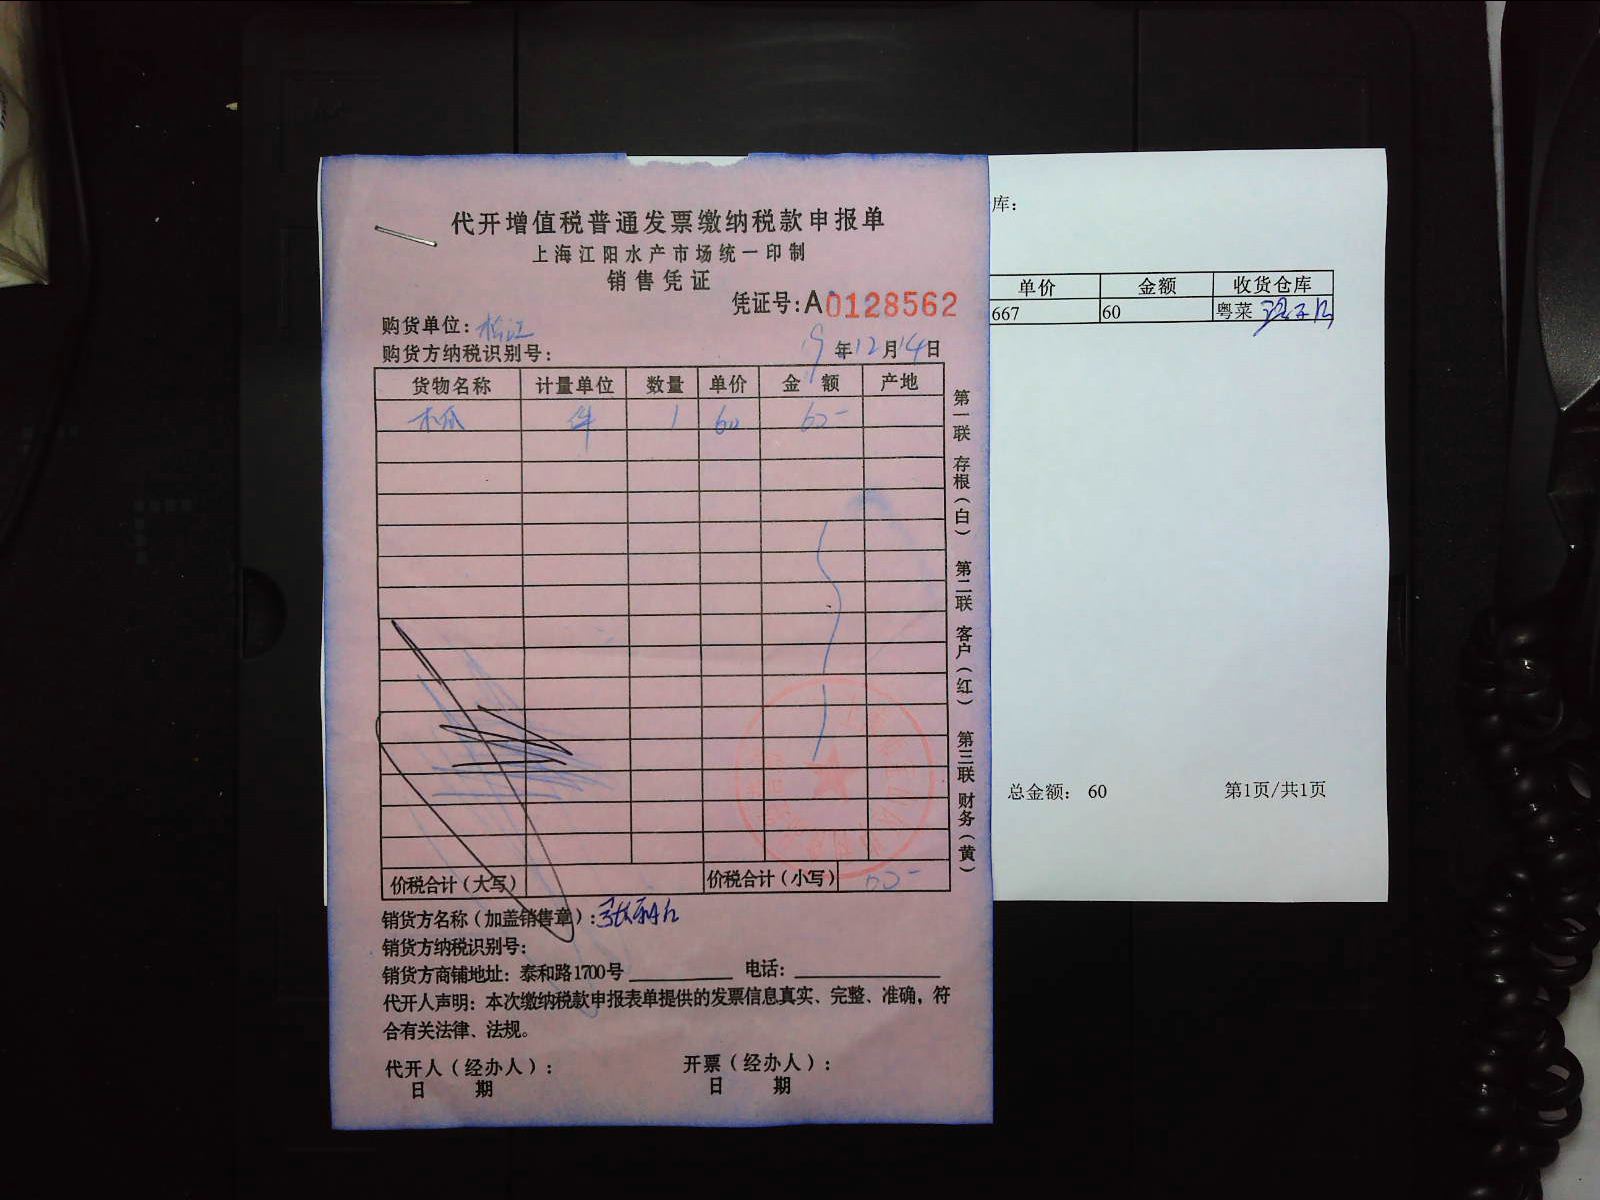 代开增值税普通发票缴纳税款申报单
上海江阳水产市场统一印制
销售凭证
凭证号:A0128562
购货单位:松江
购货方纳税识别号:
19年12月14日
货物名称 计量单位 数量 单价 金额 产地
木瓜 件 1 60 60-
价税合计(大写) 价税合计(小写) 60-
销货方名称(加盖销售章):
销货方纳税识别号:
销货方商铺地址:泰和路1700号 电话:
代开人声明:本次缴纳税款申报表单提供的发票信息真实、完整、准确,符
合有关法律、法规。
代开人(经办人): 开票(经办人):
日期 日期
第一联 存根(白) 第二联 客户(红) 第三联 财务(黄)
库:
单价 金额 收货仓库
667 60 粤菜
总金额: 60 第1页/共1页